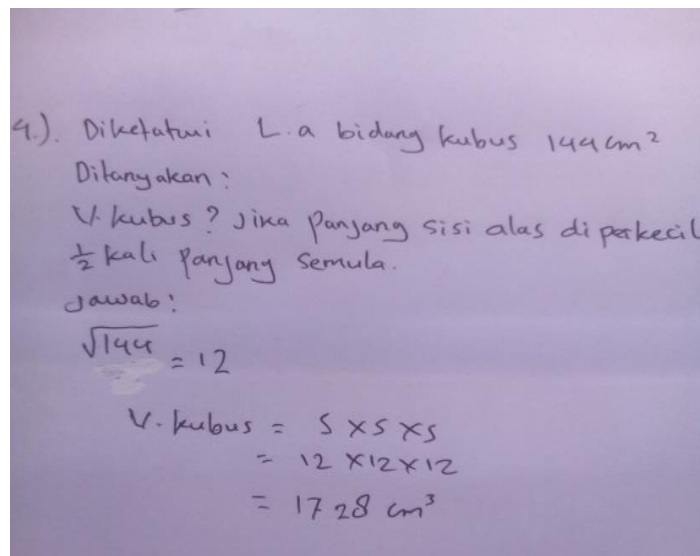 4.). Diketahui L.a bidang kubus 144 cm²
Ditanyakan :
V. kubus ? Jika panjang sisi alas diperkecil
½ kali panjang semula.
Jawab :
√144 = 12
V. kubus = s × s × s
= 12 × 12 × 12
= 1728 cm³